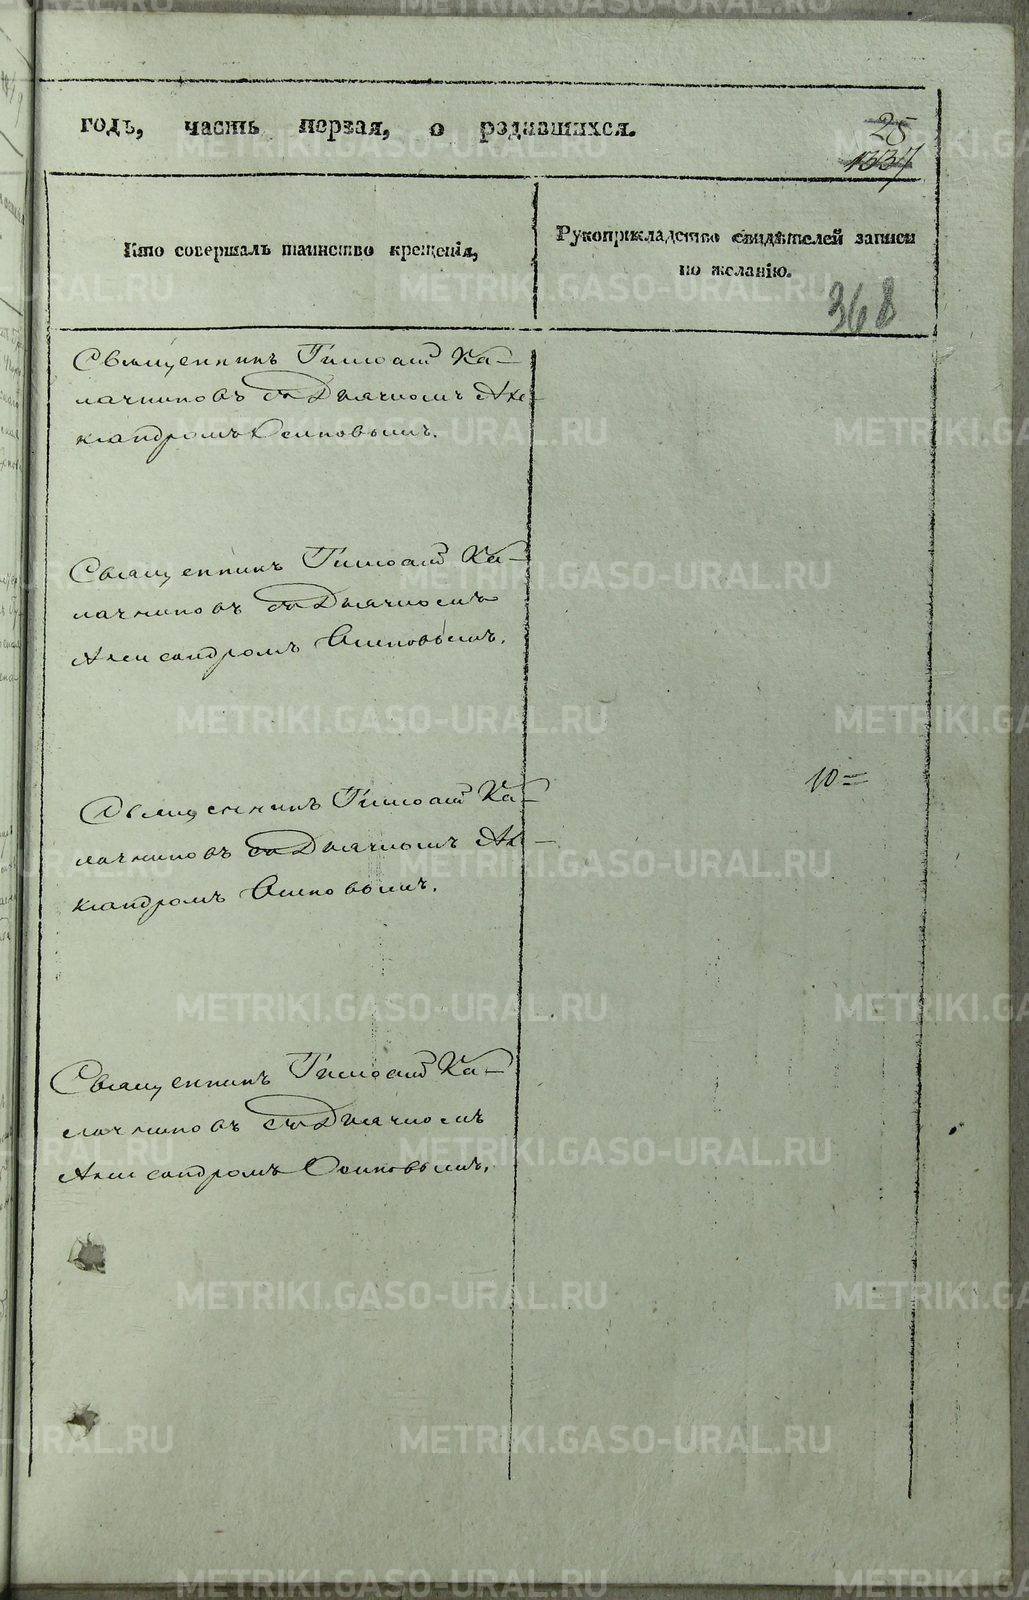 годъ, часть первая, о родившихся.
25
1337
Кто совершалъ таинство крещенія,
Рукоприкладство свидѣтелей записи
по желанію.
368
Священникъ Тимоѳей Ка-
лачниковъ съ Дьячкомъ Але-
ксандромъ Осиповымъ.
Священникъ Тимоѳей Ка-
лачниковъ съ Дьячкомъ
Александромъ Осиповымъ.
10=
Священникъ Тимоѳей Ка-
лачниковъ съ Дьячкомъ Але-
ксандромъ Осиповымъ.
Священникъ Тимоѳей Ка-
лачниковъ съ Дьячкомъ
Александромъ Осиповымъ.
METRIKI.GASO-URAL.RU